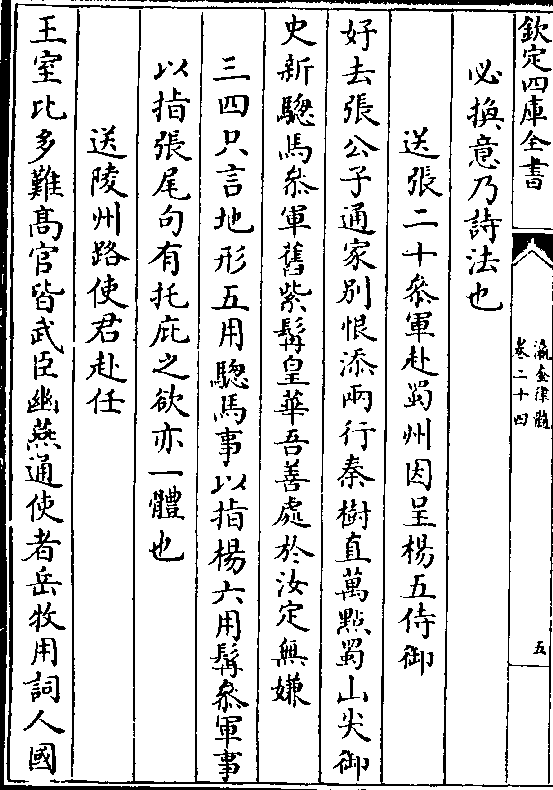 欽定四庫全書
瀛奎律髓
卷二十四
五
必換意乃詩法也
送張二十叅軍赴蜀州因呈楊五侍御
好去張公子通家别恨添兩行秦樹直萬點蜀山尖御
史新驄馬叅軍舊紫髯皇華吾善處於汝定無嫌
三四只言地形五用驄馬事以指楊六用髯叅軍事
以指張尾句有托庇之欲亦一體也
送陵州路使君赴任
王室比多難髙官皆武臣幽燕通使者岳牧用詞人國